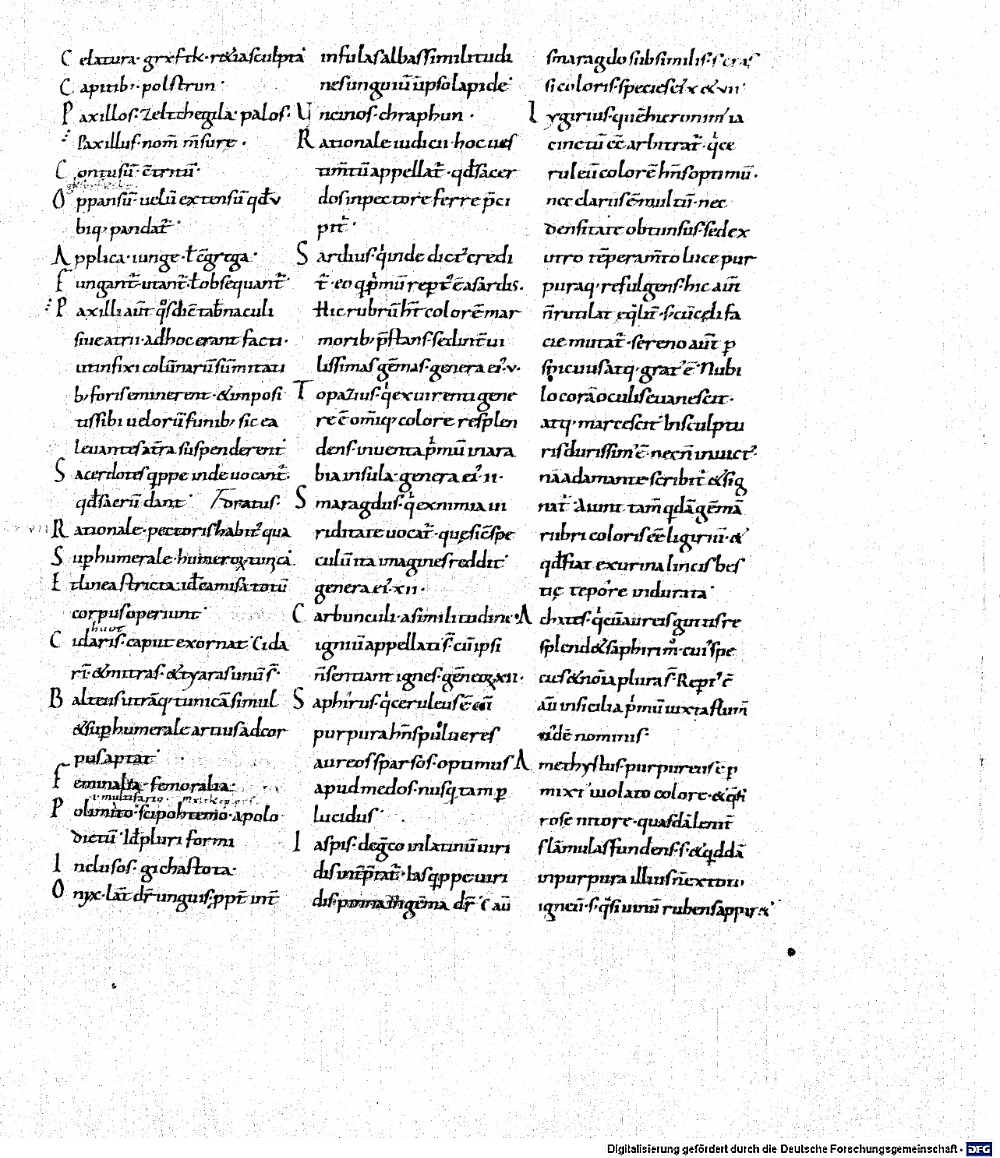 C elatura· grefti· rasculpta
C apitib;· polstrun·
P axillos· zeltchegila· palos·
Paxillus· nom̄ m̄sure·
C ontusū· c̄tritū·
O ppansū· uelū extensū qđ v
biq; pandat̄·
A pplica· iunge· ł c̄grega·
F ungant̄· utant̄· ł obsequant̄
P axilli aut̄ q̊s dic̄ tab̄naculi
siue atrii· ad hoc erant facti·
ut infixi colūnarū sūmitati
b; foris eminerent· & imposi
tis sibi uelorū funib; sic ea
leuantes at̄ra suspenderent
S acerdotes q̄ppe inde uocant̄·
qđ sacrū dant· Foratus·
R ationale· pectoris habit᷒ qua
S uphumerale· humeroꝝ tunica
E t linea stricta· iđ camisa totū
corpus operiunt·
C idaris· caput exornat· Cida
rī· & mitras· & tyaras unū s̄·
B alteus utrāq; tunicā simul
& suphumerale artius ad cor
pus aptat·
F eminalia· femoralia·
P olimito· a polo
dictū· iđ pluri formi
I nclusos· gichastota·
O nyx· lat̄· dr̄ unguis· ꝓpt̄ int̄
infulas albas similitudi
nes unguiū ī ipso lapide·
U ncinos· chraphun·
R ationale iudicii· hoc ues
tim̄tū appellat̄· qđ sacer
dos in pectore ferre p̄ci
pit̄·
S ardius· q̊ inde dict᷒ credi
t̄· eo q̊ p̄mū rept᷒ ē a sardis·
Hic rubrū ht̄ colorē mar
morib; p̄stans· sed int̄ ui
lissimas gēmas· genera ei᷒· v·
T opazius· q̊ ex uirenti gene
re ē· om̄iq; colore resplen
dens· inuenta p̄mū in ara
bia insula· genera ei᷒· ii·
S maragdus· q̊ ex nimia ui
riditate uocat̄· quę sic̄ spe
culū ita imagines reddit·
genera ei᷒· xii·
C arbunculi· a similitudine
igniū appellati s̄· cū ipsi
n̄ sentiant ignes· genera xii·
S aphirus· q̊ ceruleus ē
purpura hn̄s pulueres
aureos sparsos· optimus
apud medos· nusq̄ tam p
lucidus·
I aspis· de gc̄o in latinū uiri
dis int̄p̄tat̄· Ias q̄ppe uiri
dis· gēma dr̄· Ē aū
smaragdo subsimilis· s; cras
si coloris· species ei᷒ x & vii·
L ygirius· quē hieronim᷒ ia
cinctū ēē arbitrat̄· q̊ ce
ruleū colorē hn̄s optimū·
nec clarus ē multū· nec
densitate obtunsus· sed ex
utro tēperam̄to luce pur
puraq; refulgens· hic aūt
n̄ rutilat eq̄lit̄· s; cū cęli fa
cie mutat̄· sereno aūt p
spicuus atq; grat᷒ ē· Nubi
lo corā oculis euanescit·
atq; marcescit· In sculptu
ris durissim᷒ ē· nec n̄ inuict᷒·
nā adamante scribit̄ & sig
nat̄· Aiunt tam̄ q̄dā gēmā
rubri coloris ēē ligiriū· &
qđ fiat ex urina lincis bes
tię tēpore indurata·
A chates· q̊ cū aureis guttis re
splend& saphirini m̊· cui᷒ spe
cies & nōia plura s̄· Rept᷒ ē
aū in sicilia p̄mū iuxta flum̄
eidē nominis·
A methystus· purpureus ē p
mixt᷒ uiolato colore· & q̄si
rose nitore· quasdā leuit̄
flāmulas fundens· s; & q̄ddā
in purpura illius n̄ ex toto
igneū· s; q̄si uinū rubens apparet·
Digitalisierung gefördert durch die Deutsche Forschungsgemeinschaft - DFG